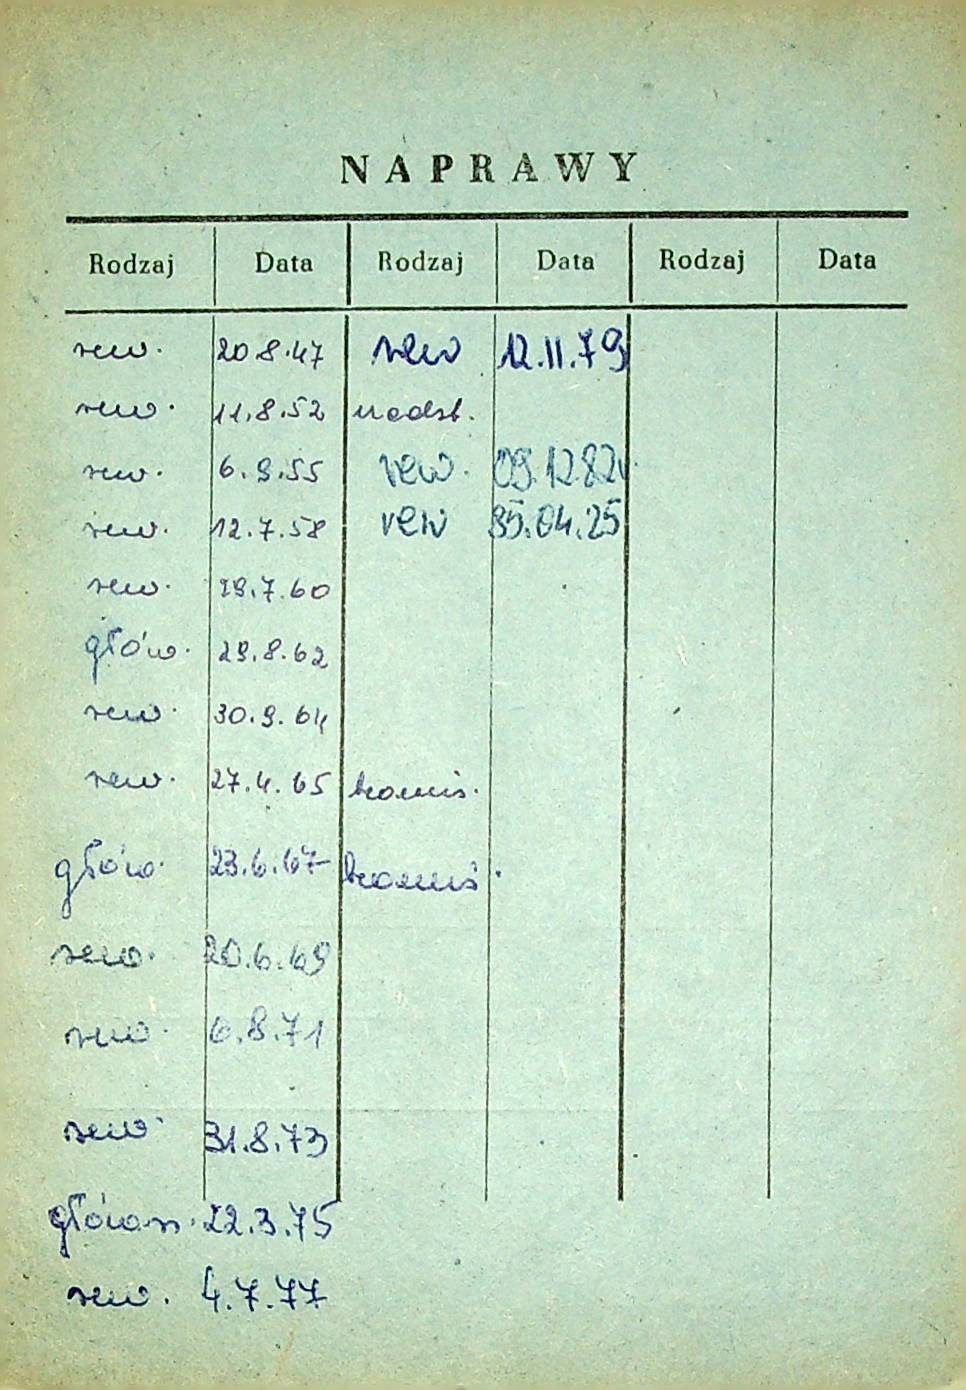 NAPRAWY
Rodzaj Data Rodzaj Data Rodzaj Data
rew. 20.8.47 rew 12.11.79
rew. 11.8.52 nadst.
rew. 6.9.55 rew. 09.12.82
rew. 12.7.58 rew 85.04.25
rew. 29.7.60
głów. 29.8.62
rew. 30.9.64
rew. 27.4.65 tramis.
głów. 23.6.67
rew. 20.6.69
rew. 6.8.71
rew. 31.8.73
główn. 22.3.75
rew. 4.7.77